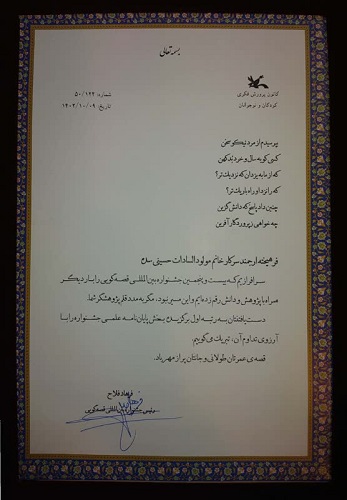 بسمه تعالی
کانون پرورش فکری
کودکان و نوجوانان
شماره: ۵۰/۱۲۴
تاریخ: ۱۴۰۲/۱۰/۰۹
بپرسیدم از مرد نیکو سخن
کسی کو به سال و خرد بُد کهن
که از ما به یزدان که نزدیک‌تر؟
که را نزد او راه باریک‌تر؟
چنین داد پاسخ که دانش گزین
چو خواهی ز پروردگار آفرین
فرهیخته ارجمند سرکار خانم مولود السادات حسینی سده
سرافرازیم که بیست و پنجمین جشنواره بین‌المللی قصه‌گویی را بار دیگر
همراه با پژوهش و دانش رقم زده‌ایم و این میسر نبود، مگر به مدد قلم پژوهشگر شما.
دست یافتنتان به رتبه اول برگزیده بخش پایان‌نامه علمی جشنواره را با
آرزوی تداوم آن، تبریک می‌گوییم.
قصه‌ی عمرتان طولانی و جانتان پر از مهر باد.
فرهاد فلاح
رئیس جشنواره بین‌المللی قصه‌گویی